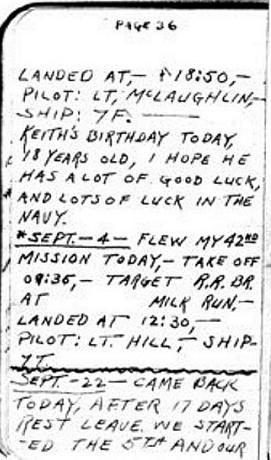 PAGE 36
LANDED AT,- 18:50,-
PILOT: LT, McLAUGHLIN,-
SHIP: 7F.
KEITH'S BIRTHDAY TODAY,
18 YEARS OLD, I HOPE HE
HAS A LOT OF GOOD LUCK,
AND LOTS OF LUCK IN THE
NAVY.
*SEPT.-4- FLEW MY 42ND
MISSION TODAY,- TAKE OFF
09:35,- TARGET R.R. BR.
AT MILK RUN,-
LANDED AT 12:30,-
PILOT: LT. HILL,- SHIP-
SEPT.-22- CAME BACK
TODAY, AFTER 17 DAYS
REST LEAVE. WE START-
-ED THE 5TH AND OUR